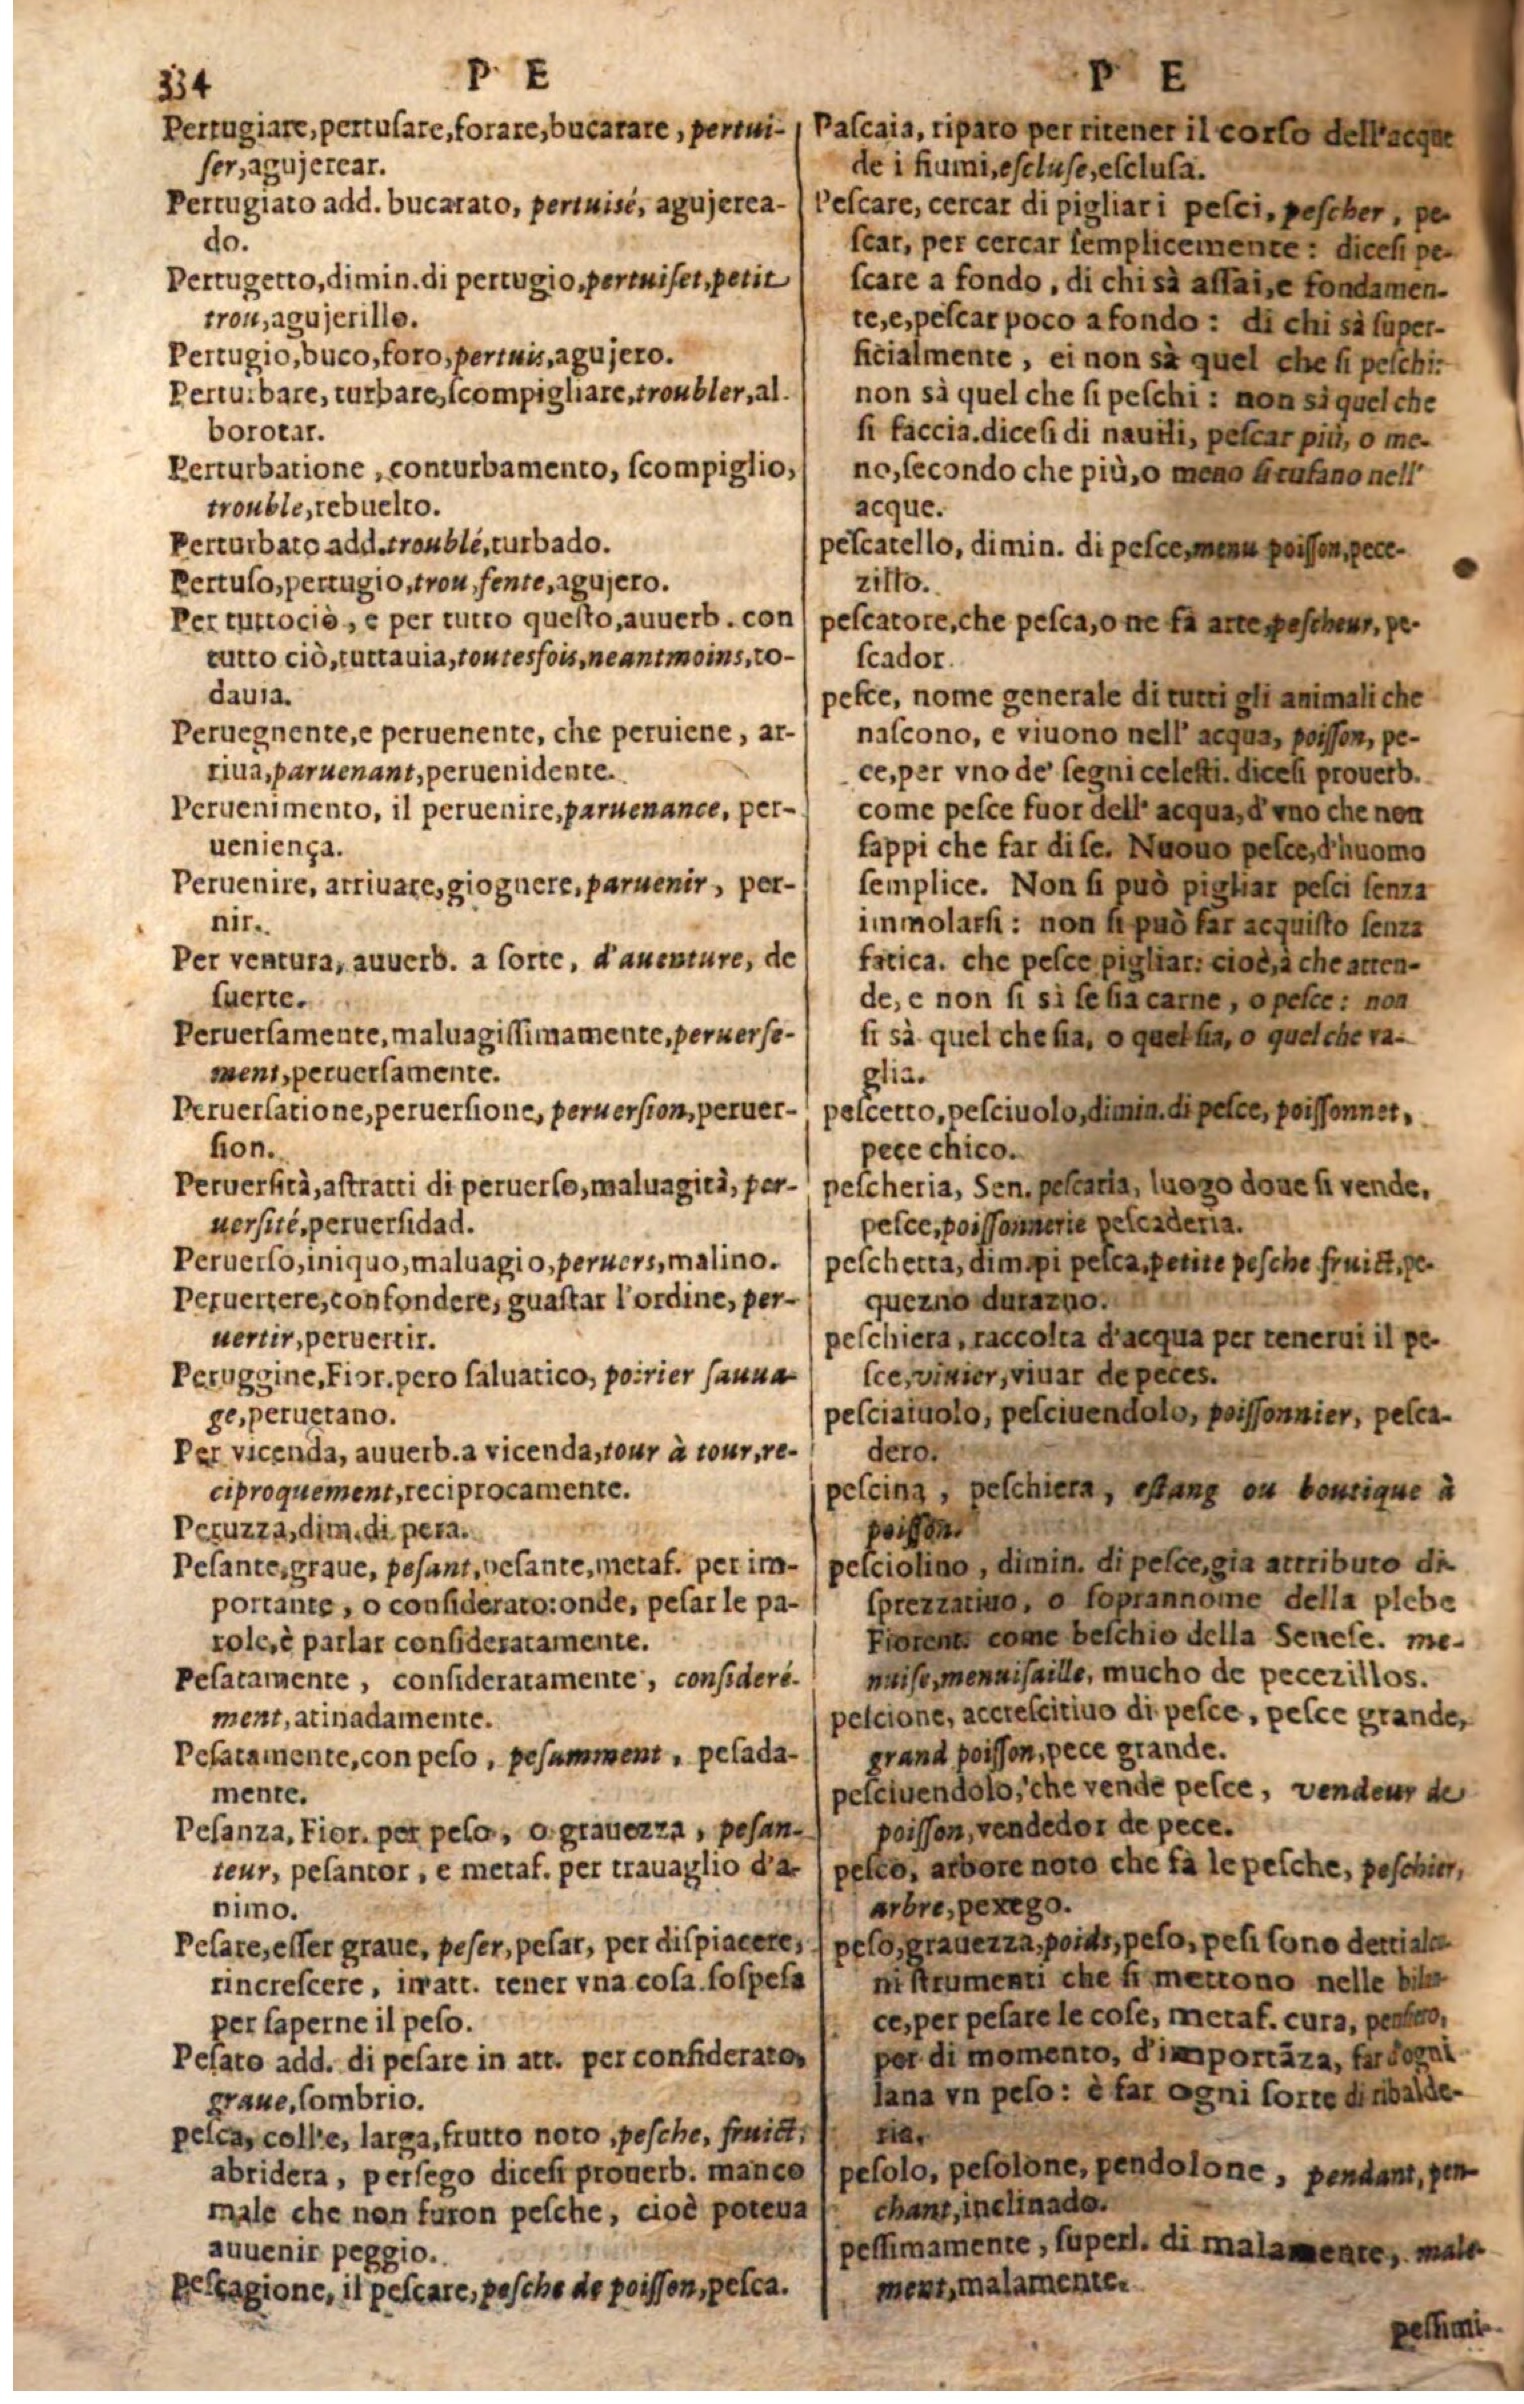 334
P E
Pertugiare,pertuſare,forare,bucarare, pertui-
ſer,agujerear.
Pertugiato add. bucarato, pertuisé, agujerea-
do.
Pertugetto,dimin.di pertugio,pertuiſet,petit
trou,agujerillo.
Pertugio,buco,foro,pertuis,agujero.
Perturbare, turbare,ſcompigliare,troubler,al-
borotar.
Perturbatione, conturbamento, ſcompiglio,
trouble,rebuelto.
Perturbato add.troublé,turbado.
Pertuſo,pertugio,trou,fente,agujero.
Per tuttociò, e per tutto queſto,auuerb. con
tutto ciò,tuttauia,toutesfois,neantmoins,to-
dauia.
Peruegnente,e peruenente, che peruiene, ar-
riua,paruenant,peruenidente.
Peruenimento, il peruenire,paruenance, per-
ueniença.
Peruenire, arriuare,giognere,paruenir, per-
nir.
Per ventura, auuerb. a ſorte, d'auenture, de
ſuerte.
Peruerſamente,maluagiſſimamente,peruerſe-
ment,peruerſamente.
Peruerſatione,peruerſione, peruerſion,peruer-
ſion.
Peruerſità,aſtratti di peruerſo,maluagità, per-
uerſité,peruerſidad.
Peruerſo,iniquo,maluagio,peruers,malino.
Peruertere,confondere, guaſtar l'ordine, per-
uertir,peruertir.
Peruggine,Fior.pero ſaluatico, poirier ſauua-
ge,peruetano.
Per vicenda, auuerb.a vicenda,tour à tour,re-
ciproquement,reciprocamente.
Peruzza,dim.di pera.
Peſante,graue, peſant,peſante,metaf. per im-
portante, o conſiderato:onde, peſar le pa-
role,è parlar conſideratamente.
Peſatamente, conſideratamente, conſideré-
ment,atinadamente.
Peſatamente,con peſo, peſamment, peſada-
mente.
Peſanza, Fior. per peſo, o grauezza, peſan-
teur, peſantor, e metaf. per trauaglio d'a-
nimo.
Peſare,eſſer graue, peſer,peſar, per diſpiacere,
rincreſcere, in att. tener vna coſa ſoſpeſa
per ſaperne il peſo.
Peſato add. di peſare in att. per conſiderato,
graue,ſombrio.
peſca, coll'e, larga,frutto noto,peſche, fruict,
abridera, perſego diceſi prouerb. manco
male che non furon peſche, cioè poteua
auuenir peggio.
Peſcagione, il peſcare,peſche de poiſſon,peſca.
P E
Paſcaia, riparo per ritener il corſo dell'acque
de i fiumi,eſcluſe,eſcluſa.
Peſcare, cercar di pigliar i peſci, peſcher, pe-
ſcar, per cercar ſemplicemente: diceſi pe-
ſcare a fondo, di chi sà aſſai,e fondamen-
te,e,peſcar poco a fondo: di chi sà ſuper-
ficialmente, ei non sà quel che ſi peſchi:
non sà quel che ſi peſchi: non sà quel che
ſi faccia.diceſi di nauili, peſcar più, o me-
no,ſecondo che più,o meno ſi tufano nell'
acque.
peſcatello, dimin. di peſce,menu poiſſon,pece-
zillo.
peſcatore,che peſca,o ne fà arte,peſcheur, pe-
ſcador.
peſce, nome generale di tutti gli animali che
naſcono, e viuono nell' acqua, poiſſon, pe-
ce,per vno de' ſegni celeſti. diceſi prouerb.
come peſce fuor dell' acqua, d'vno che non
ſappi che far di ſe. Nuouo peſce,d'huomo
ſemplice. Non ſi può pigliar peſci ſenza
immolarſi: non ſi può far acquiſto ſenza
fatica. che peſce pigliar: cioè,à che atten-
de, e non ſi sì ſe ſia carne, o peſce: non
ſi sà quel che ſia, o quel ſia, o quel che va-
glia.
peſcetto,peſciuolo,dimin.di peſce, poiſſonnet,
peçe chico.
peſcheria, Sen. peſcaria, luogo doue ſi vende,
peſce,poiſſonnerie peſcaderia.
peſchetta, dim.pi peſca,petite peſche fruict,pe-
quezno durazno.
peſchiera, raccolta d'acqua per tenerui il pe-
ſce,viuier,viuar de peces.
peſciaiuolo, peſciuendolo, poiſſonnier, peſca-
dero.
peſcina, peſchiera, eſtang ou boutique à
poiſſon.
peſciolino, dimin. di peſce,gia attributo di-
ſprezzatiuo, o ſoprannome della plebe
Fiorent. come beſchio della Seneſe. me-
nuiſe,menuiſaille, mucho de pecezillos.
peſcione, accreſcitiuo di peſce, peſce grande,
grand poiſſon,pece grande.
peſciuendolo, che vende peſce, vendeur de
poiſſon,vendedor de pece.
peſco, arbore noto che fà le peſche, peſchier,
arbre,pexego.
peſo,grauezza,poids,peſo,peſi ſono detti alcu-
ni ſtrumenti che ſi mettono nelle bilan-
ce,per peſare le coſe, metaf. cura, penſiero,
per di momento, d'importãza, far d'ogni
lana vn peſo: è far ogni ſorte di ribalde-
ria.
peſolo, peſolone, pendolone, pendant, pen-
chant,inclinado.
peſſimamente, ſuperl. di malamente, male-
ment,malamente.
peſſimi-